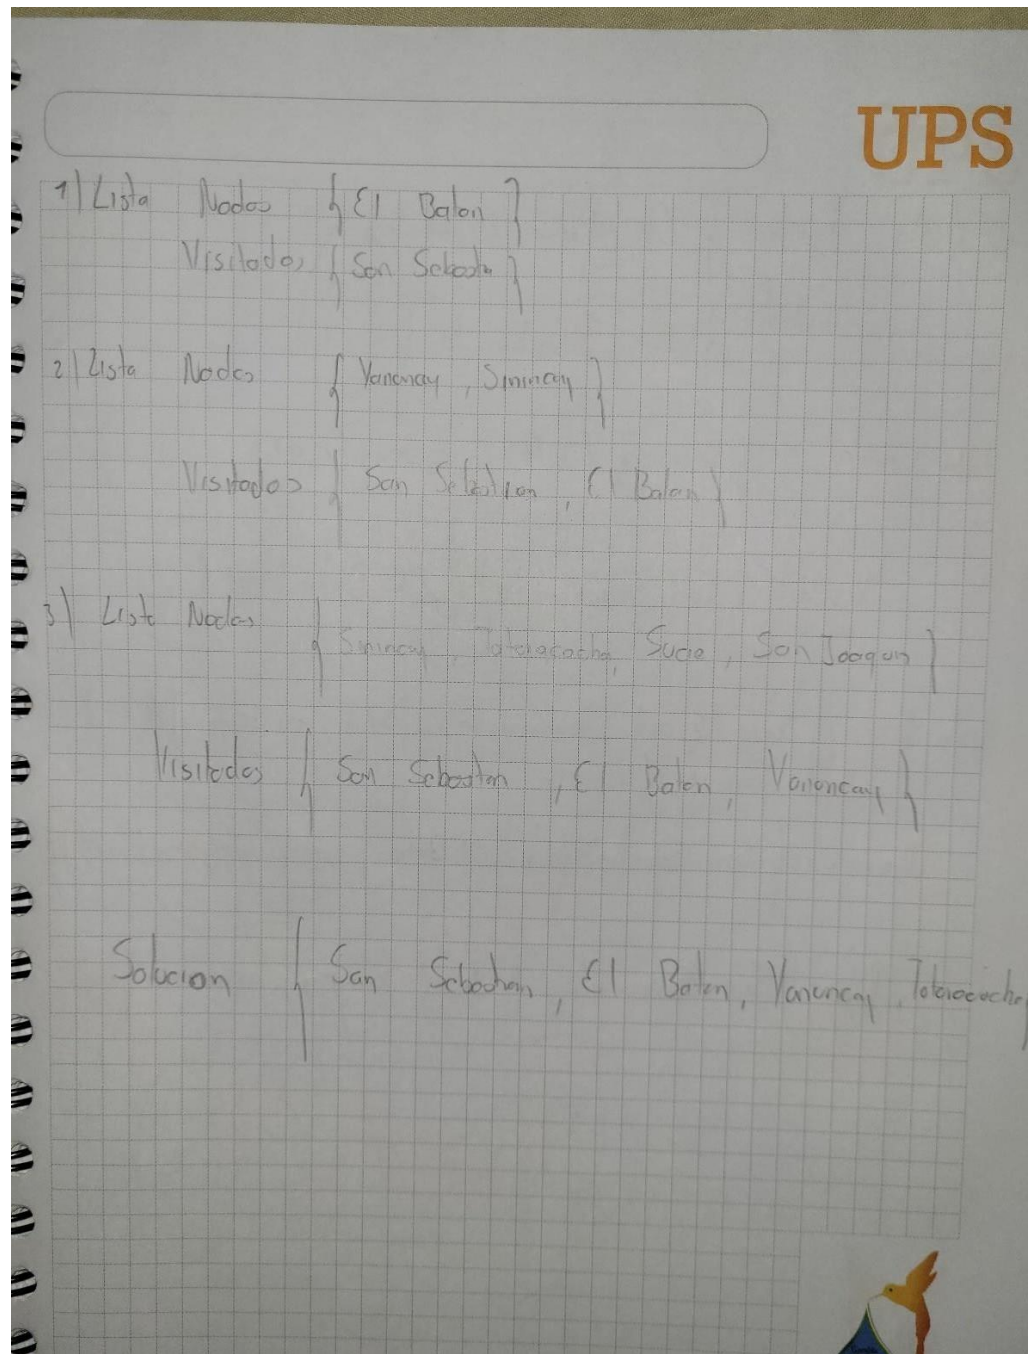 UPS
1) Lista Nodos { El Batan }
Visitados { San Sebastian }
2) Lista Nodos { Yanuncay, Sinincay }
Visitados { San Sebastian, El Batan }
3) Lista Nodos { Sinincay, Totoracocha, Sucre, San Joaquin }
Visitados { San Sebastian, El Batan, Yanuncay }
Solucion { San Sebastian, El Batan, Yanuncay, Totoracocha